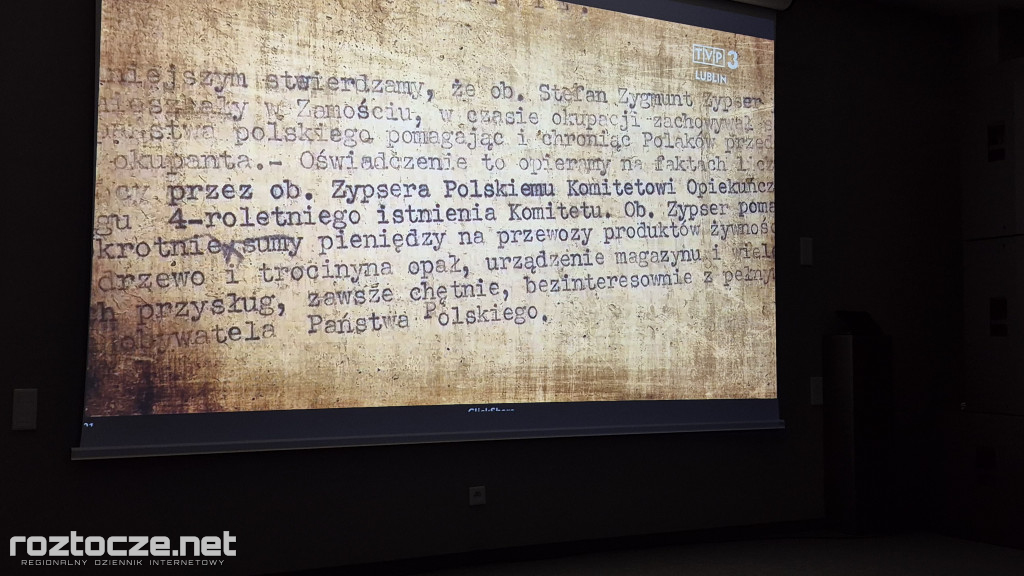 TVP3
LUBLIN
niejszym stwierdzamy, że ob. Stefan Zygmunt Zypser
mieszkały w Zamościu, w czasie okupacji zachowywał
państwa polskiego pomagając i chroniąc Polaków przed
okupanta.- Oświadczenie to opieramy na faktach licz
cy przez ob. Zypsera Polskiemu Komitetowi Opiekuńcz
gu 4-roletniego istnienia Komitetu. Ob. Zypser poma
krotnie sumy pieniędzy na przewozy produktów żywnoś
drzewo i trocinyna opał, urządzenie magazynu i wiel
h przysług, zawsze chętnie, bezinteresownie z pełny
obywatela Państwa Polskiego.
ClickShare
roztocze.net
REGIONALNY DZIENNIK INTERNETOWY